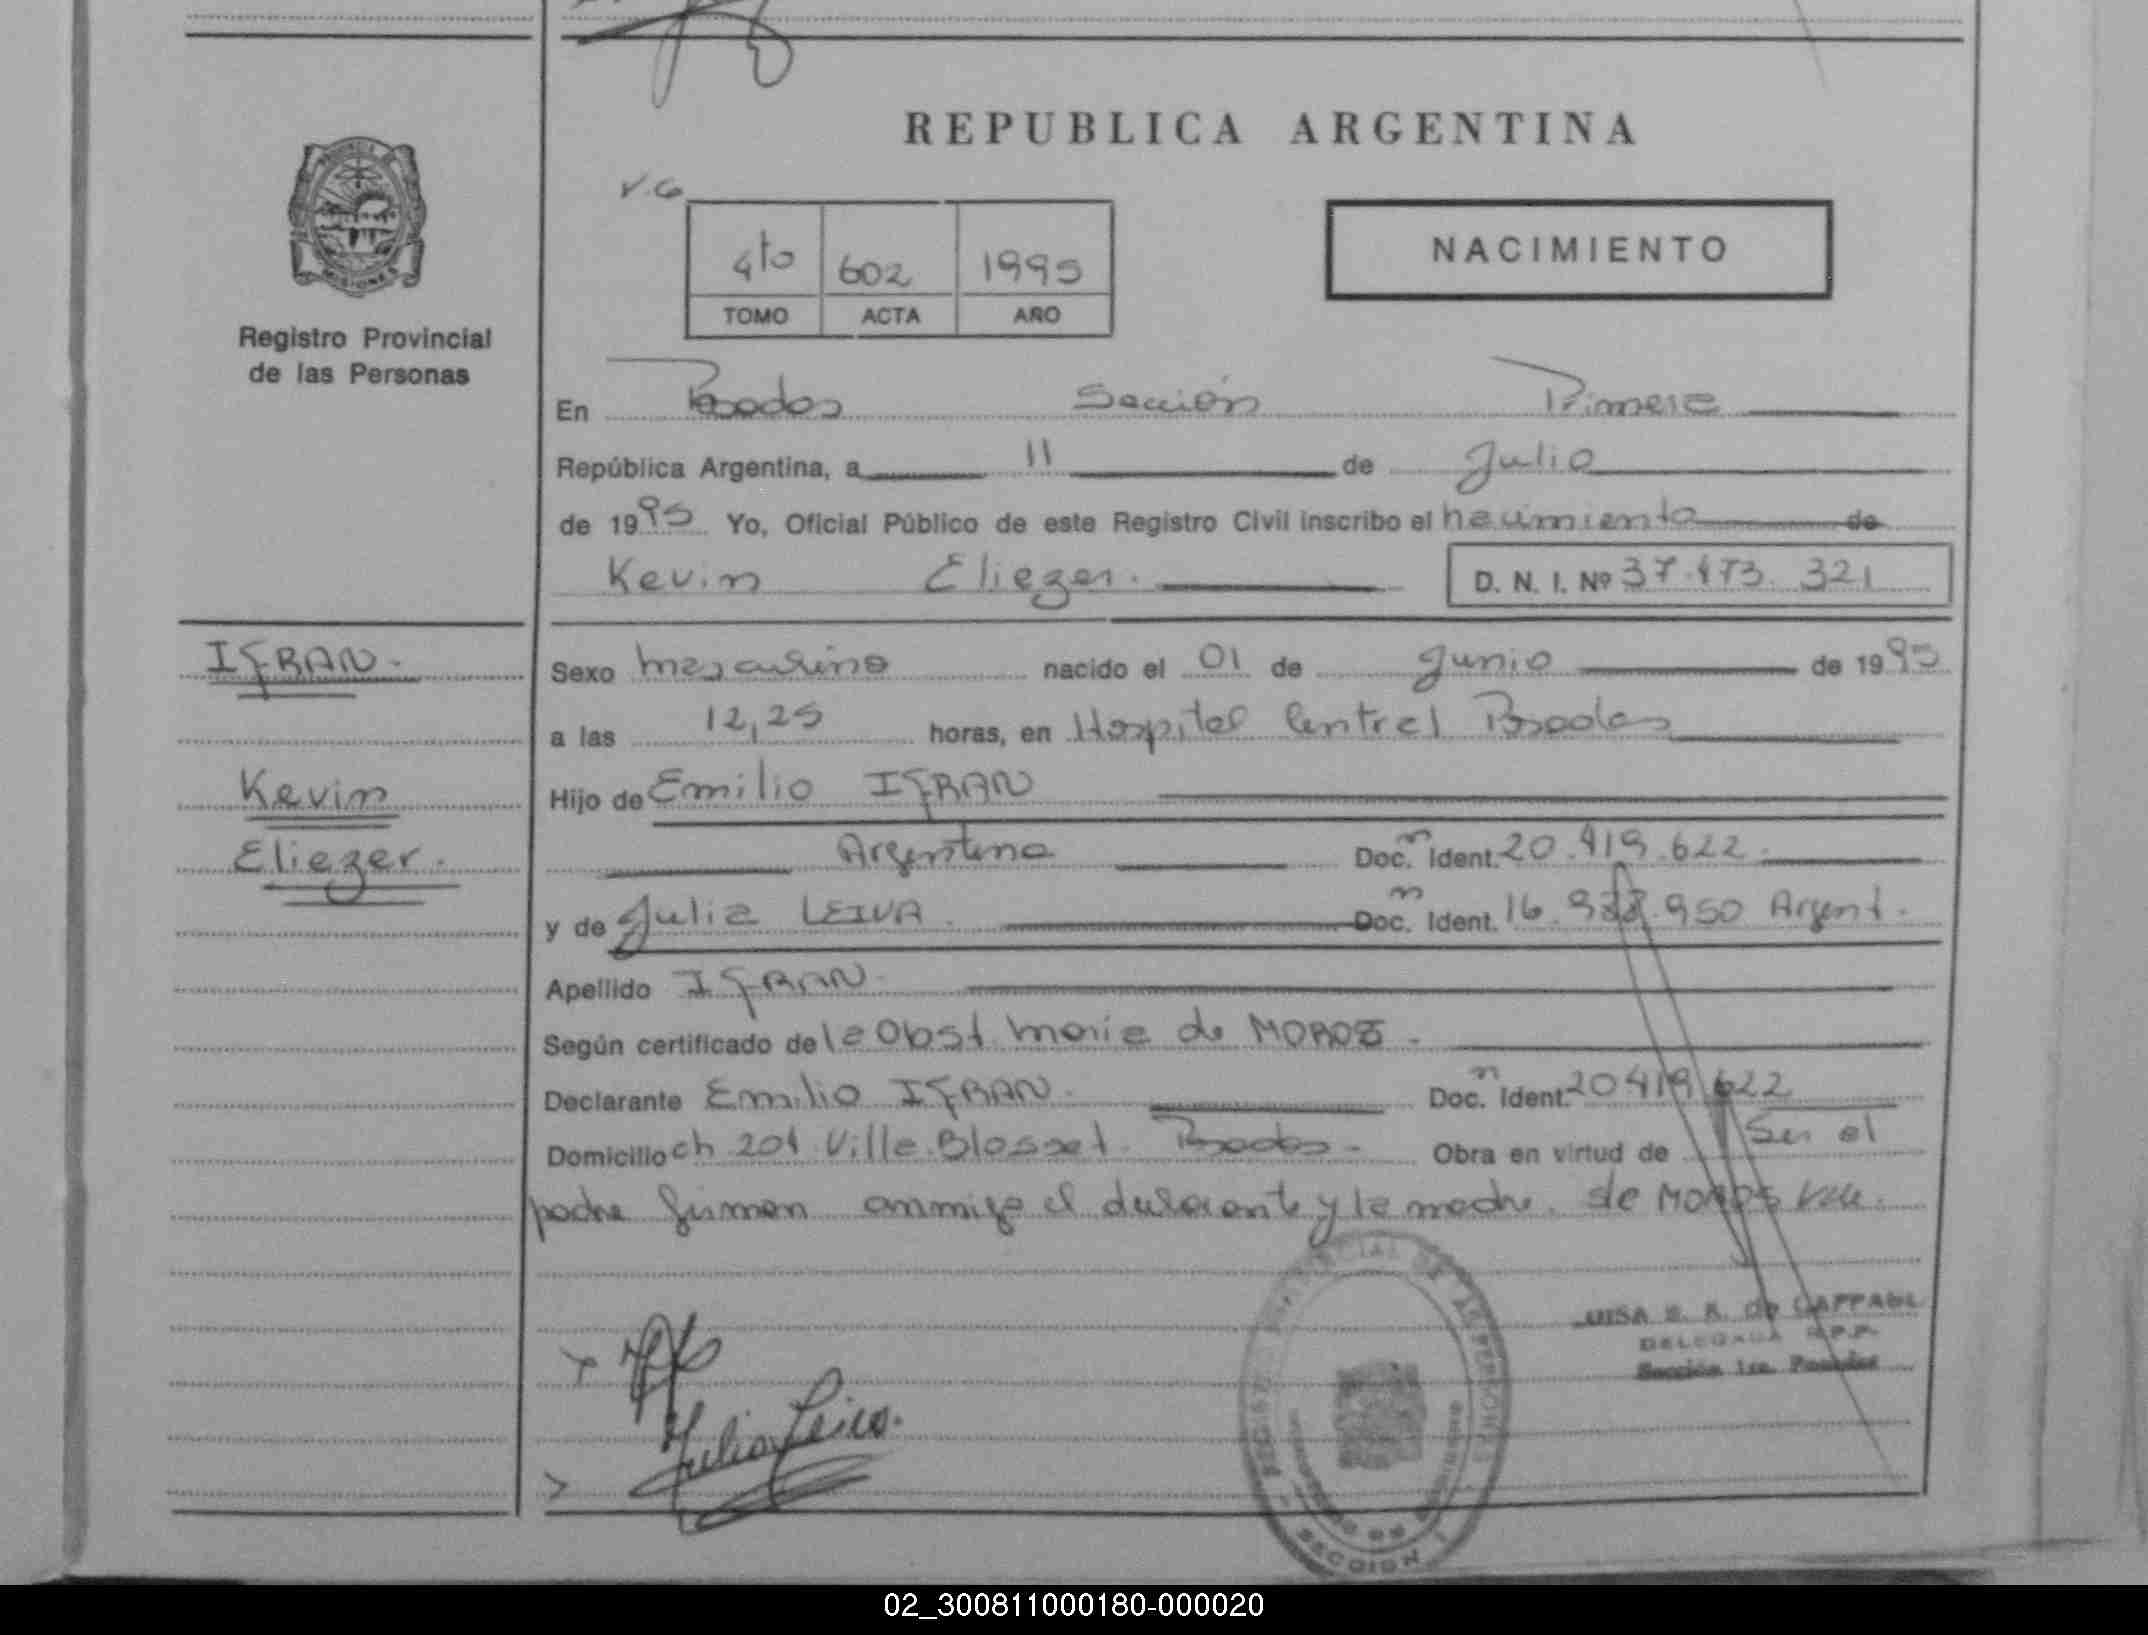 REPUBLICA ARGENTINA
PROVINCIA
MISIONES
Registro Provincial
de las Personas
V.G
4to 602 1995
TOMO ACTA AÑO
NACIMIENTO
En Posadas Sección Primera
República Argentina, a 11 de Julio
de 1995 Yo, Oficial Público de este Registro Civil inscribo el nacimiento de
Kevin Eliezer. D. N. I. Nº 37.473.321
IFRAN.
Kevin
Eliezer.
Sexo masculino nacido el 01 de Junio de 1995
a las 12,25 horas, en Hospital Central Posadas
Hijo de Emilio IFRAN
Argentino Doc. Ident. 20.419.622.
y de Julia LEIVA. Doc. Ident. 16. .950 Argent.
Apellido IFRAN.
Según certificado de la Obst. Maria de MOROZ.
Declarante Emilio IFRAN. Doc. Ident. 20419622
Domicilio ch 204 Villa Blosset. Posadas. Obra en virtud de Ser el
padre firman conmigo el declarante y la madre. de Vale.
Julia Leiva.
DE LAS PERSONAS
SECCION 1
UISA E. R. de
DELEGADA R.P.P.
Sección 1ra. Posadas
02_300811000180-000020